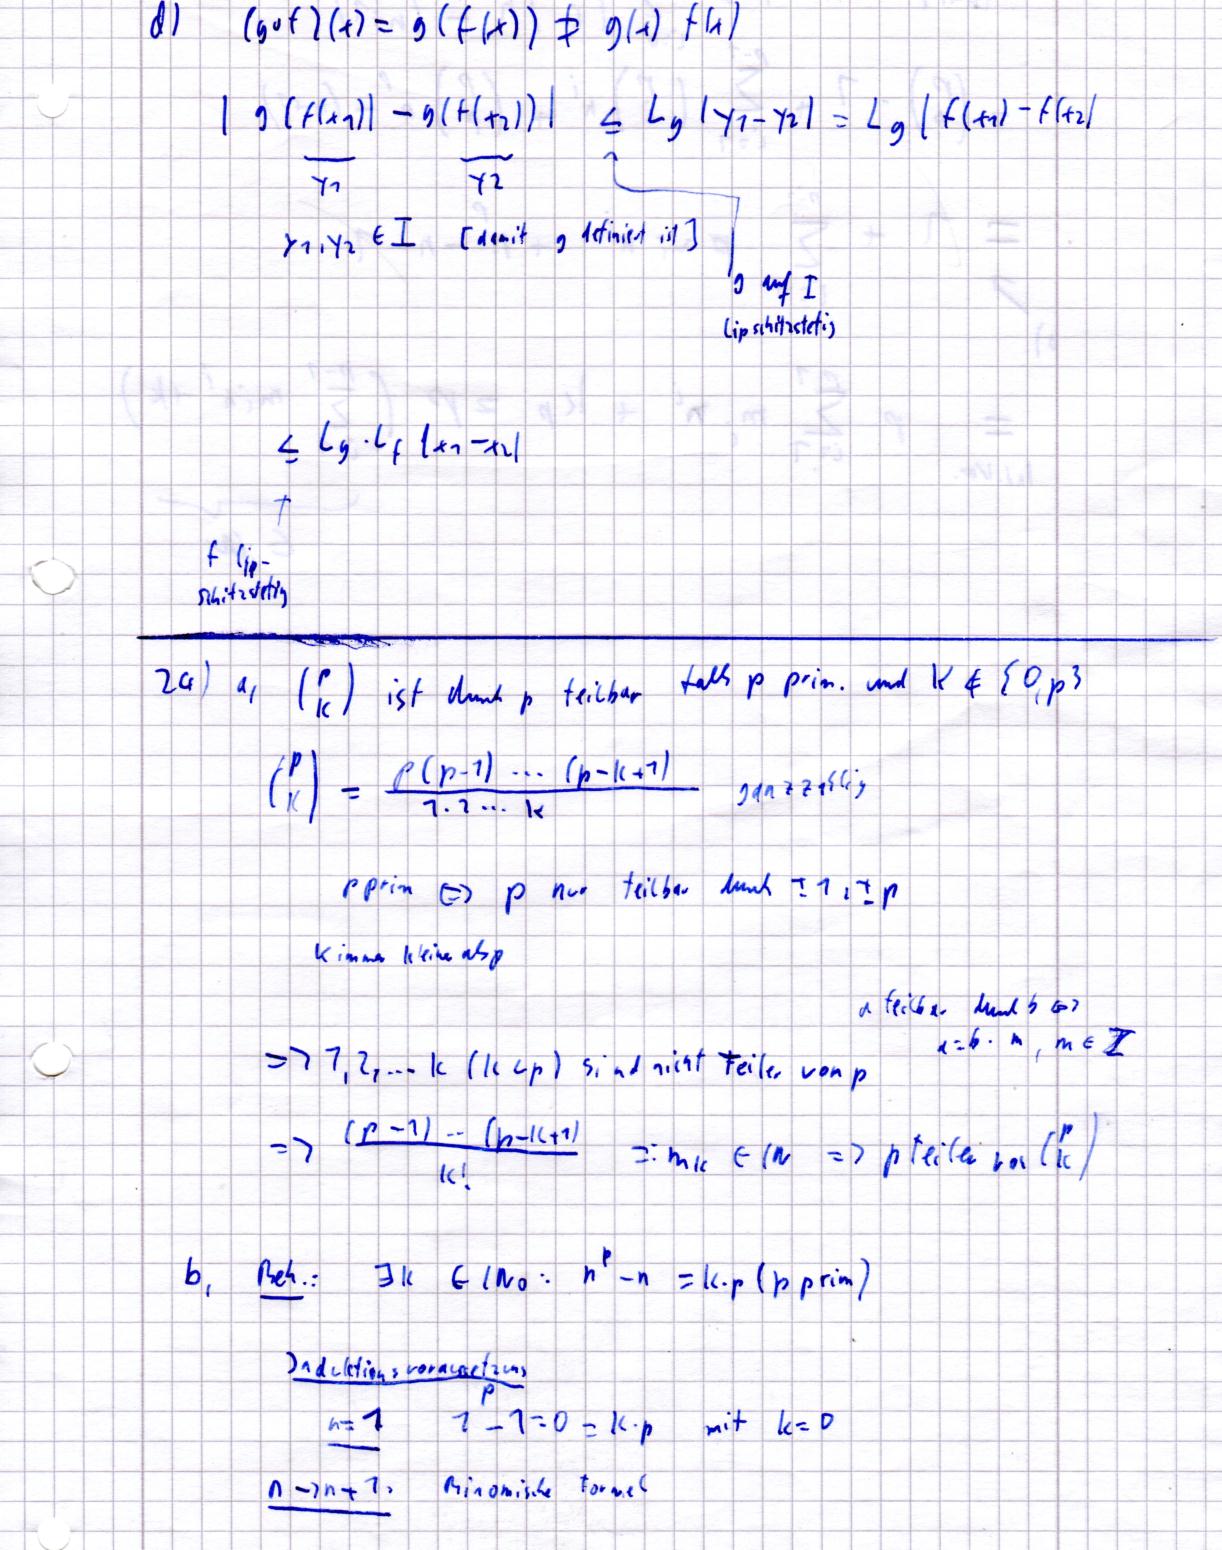 d) (g∘f)(x) = g(f(x)) ≠ g(x) f(x)
| g(f(x1)) - g(f(x2)) | ≤ Lg |y1-y2| = Lg | f(x1) - f(x2)|
y1 y2
y1, y2 ∈ I [damit g definiert ist]
g auf I
Lipschitzstetig
≤ Lg · Lf |x1 - x2|
↑
f Lip-
schitzstetig
2a) a, (p k) ist durch p teilbar falls p prim. und k ∉ {0,p}
(p k) = p(p-1) ... (p-k+1) / 1·2... k ganzzahlig
p prim <=> p nur teilbar durch ±1, ±p
k immer kleiner als p
a teilbar durch b <=>
a=b·m, m ∈ Z
=> 1,2,... k (k<p) sind nicht Teiler von p
=> (p-1) ... (p-k+1) / k! =: mk ∈ IN => p Teiler von (p k)
b, Beh.: ∃k ∈ IN0: n^p - n = k·p (p prim)
Induktionsvoraussetzung
n=1 1^p - 1 = 0 = k·p mit k=0
n -> n+1: Binomische Formel